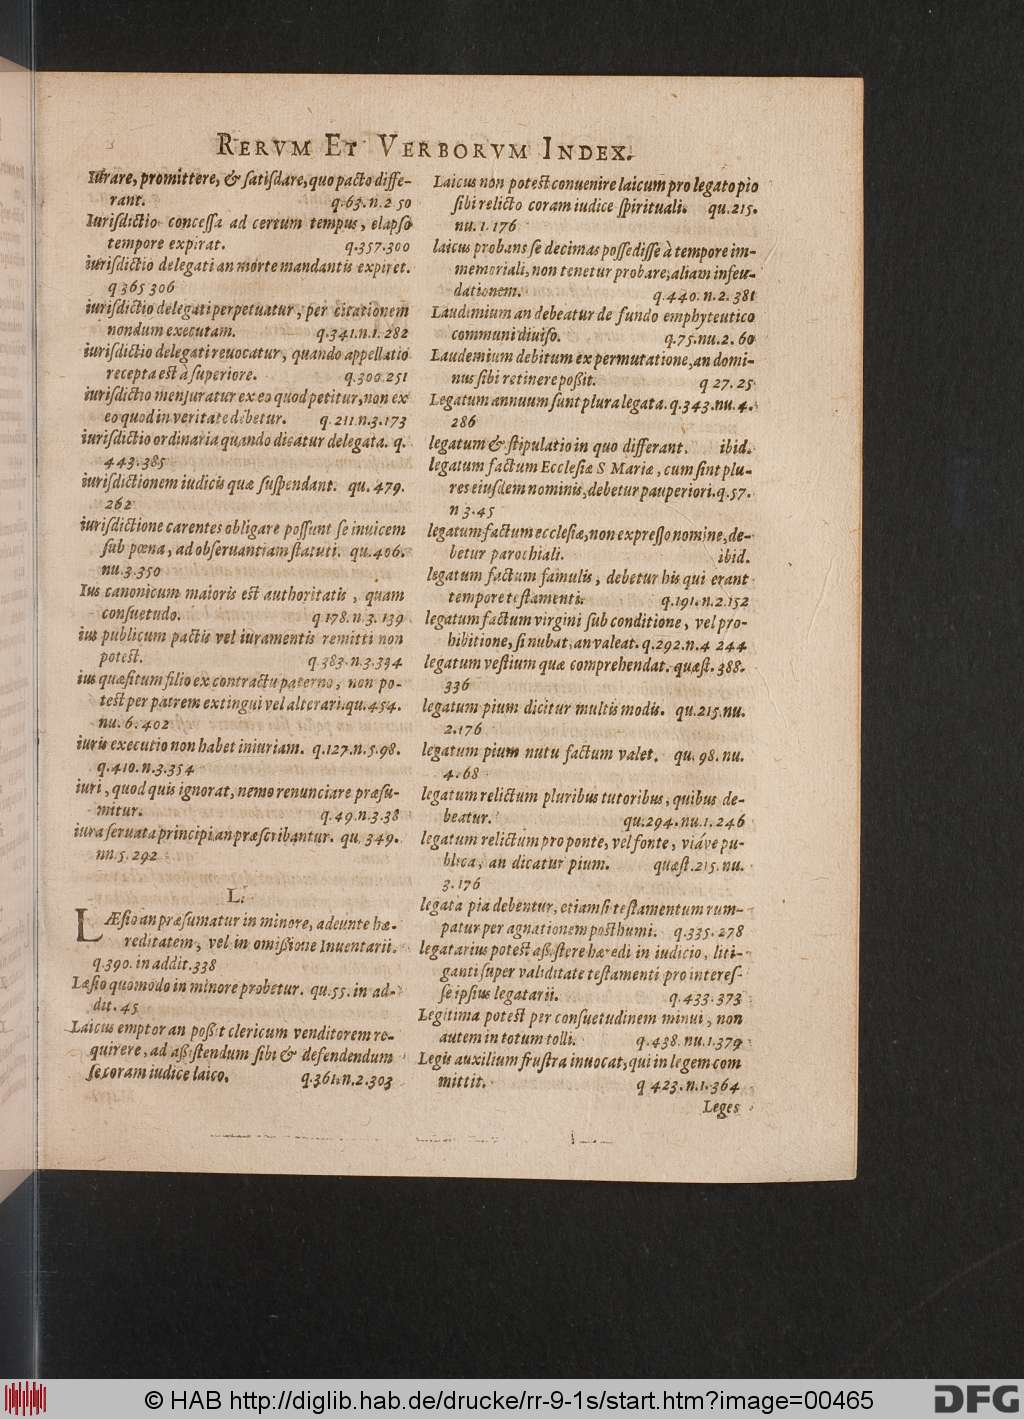 RERVM ET VERBORVM INDEX.
Iurare, promittere, & ſatiſdare, quo pacto diffe-
rant. q.63.n.2.50
Iuriſdictio conceſſa ad certum tempus, elapſo
tempore expirat. q.357.300
iuriſdictio delegati an morte mandantis expiret.
q 365 306
iuriſdictio delegati perpetuatur, per citationem
nondum executam. q.341.n.1.282
iuriſdictio delegati reuocatur, quando appellatio
recepta est à ſuperiore. q.300.251
iuriſdictio menſuratur ex eo quod petitur, non ex
eo quod in veritate debetur. q.211.n.3.173
iuriſdictio ordinaria quando dicatur delegata. q.
443.385
iuriſdictionem iudicis quæ ſuſpendant. qu.479.
262
iuriſdictione carentes obligare poſſunt ſe inuicem
ſub pœna, ad obſeruantiam ſtatuti. qu.406.
nu.3.350
Ius canonicum maioris est authoritatis, quam
conſuetudo. q.178.n.3.139
ius publicum pactis vel iuramentis remitti non
potest. q.383.n.3.334
ius quæſitum filio ex contractu paterno, non po-
test per patrem extingui vel alterari. qu.454.
nu.6.402
iuris executio non habet iniuriam. q.127.n.5.98.
q.410.n.3.354
iuri, quod quis ignorat, nemo renunciare præſu-
mitur. q.49.n.3.38
iura ſeruata principi, an præſcribantur. qu.349.
nn.5.292
L.
LÆſio an præſumatur in minore, adeunte hæ-
reditatem, vel in omiſſione Inuentarii.
q.390. in addit.338
Læſio quomodo in minore probetur. qu.55. in ad-
dit.45
Laicus emptor an poßit clericum venditorem re-
quirere, ad aßiſtendum ſibi & defendendum
ſe coram iudice laico. q.361.n.2.303
Laicus non potest conuenire laicum pro legato pio
ſibi relicto coram iudice ſpirituali. qu.215.
nu.1.176
laicus probans ſe decimas poſſediſſe à tempore im-
memoriali, non tenetur probare, aliam infeu-
dationem. q.440.n.2.381
Laudimium an debeatur de fundo emphyteutico
communi diuiſo. q.75.nu.2.60
Laudemium debitum ex permutatione, an domi-
nus ſibi retinere poßit. q 27.25
Legatum annuum ſunt plura legata. q.343.nu.4.
286
legatum & ſtipulatio in quo differant. ibid.
legatum factum Eccleſiæ S Mariæ, cum ſint plu-
res eiuſdem nominis, debetur pauperiori. q.57.
n 3.45
legatum factum eccleſiæ, non expreſſo nomine, de-
betur parochiali. ibid.
legatum factum famulis, debetur his qui erant
tempore teſtamenti. q.191.n.2.152
legatum factum virgini ſub conditione, vel pro-
hibitione, ſi nubat, an valeat. q.292.n.4 244
legatum veſtium quæ comprehendat. quæſt.388.
336
legatum pium dicitur multis modis. qu.215.nu.
2.176
legatum pium nutu factum valet. qu.98.nu.
4.68
legatum relictum pluribus tutoribus, quibus de-
beatur. qu.294.nu.1.246
legatum relictum pro ponte, vel fonte, viáve pu-
blica, an dicatur pium. quæſt.215.nu.
3.176
legata pia debentur, etiamſi teſtamentum rum-
patur per agnationem poſthumi. q.335.278
legatarius potest aßiſtere hæredi in iudicio, liti-
ganti ſuper validitate teſtamenti pro intereſ-
ſe ipſius legatarii. q.433.373
Legitima potest per conſuetudinem minui, non
autem in totum tolli. q.438.nu.1.379
Legis auxilium fruſtra inuocat, qui in legem com
mittit. q 423.n.1.364
Leges
© HAB http://diglib.hab.de/drucke/rr-9-1s/start.htm?image=00465
DFG